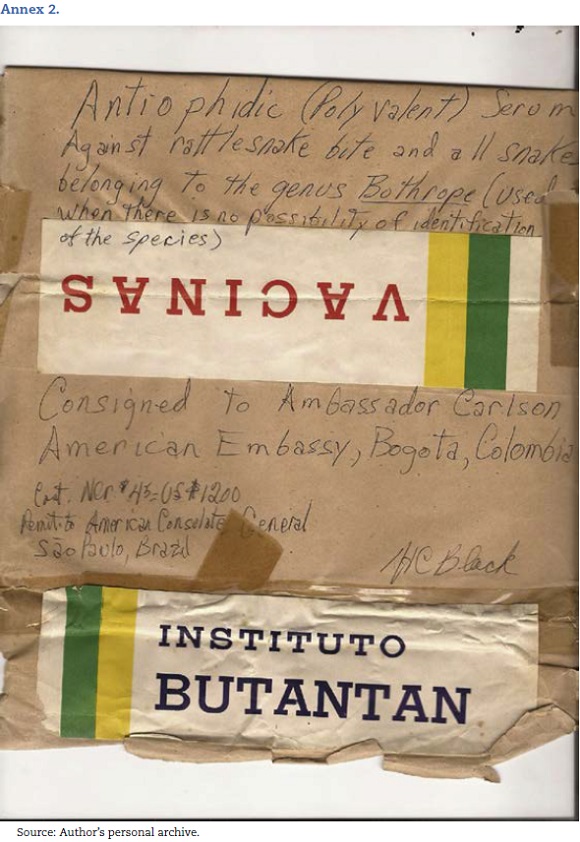 Annex 2.
Antiophidic (Polyvalent) Serum
Against rattlesnake bite and all snakes
belonging to the genus Bothrope (used
when there is no possibility of identification
of the species)
VACINAS
Consigned to Ambassador Carlson
American Embassy, Bogota, Colombia
Cost. NCr $43 = US $1200
Remit to American Consulate General
São Paulo, Brazil
HC Black
INSTITUTO
BUTANTAN
Source: Author's personal archive.